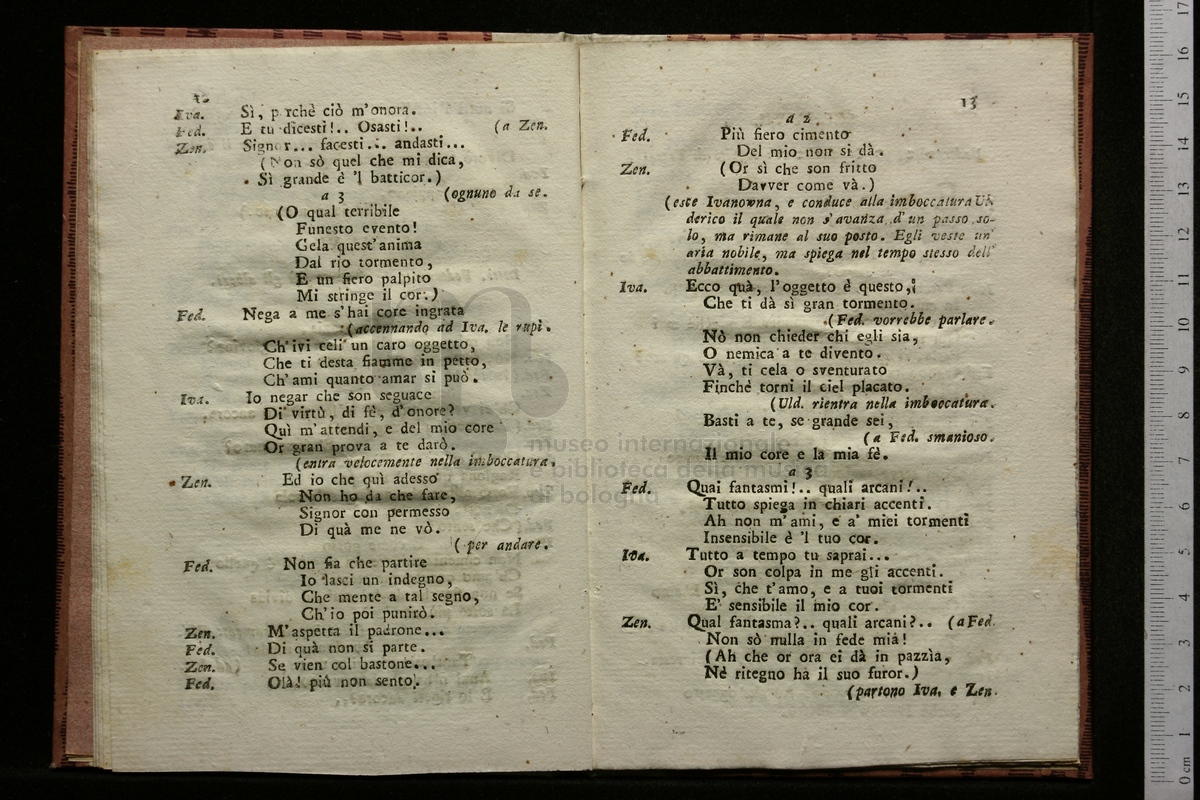 Iva. Sì, perchè ciò m'onora.
Fed. E tu dicesti!.. Osasti!.. (a Zen.
Zen. Signor... facesti... andasti...
(Non sò quel che mi dica,
Sì grande è 'l batticor.)
a 3 (ognuno da se.
(O qual terribile
Funesto evento!
Gela quest'anima
Dal rio tormento,
E un fiero palpito
Mi stringe il cor.)
Fed. Nega a me s'hai core ingrata
(accennando ad Iva. le rupi.
Ch'ivi celi un caro oggetto,
Che ti desta fiamme in petto,
Ch'ami quanto amar si può.
Iva. Io negar che son seguace
Di virtù, di fè, d'onore?
Quì m'attendi, e del mio core
Or gran prova a te darò.
(entra velocemente nella imboccatura.
Zen. Ed io che quì adesso
Non ho da che fare,
Signor con permesso
Di quà me ne vò.
(per andare.
Fed. Non fia che partire
Io lasci un indegno,
Che mente a tal segno,
Ch'io poi punirò.
Zen. M'aspetta il padrone...
Fed. Di quà non si parte.
Zen. Se vien col bastone...
Fed. Olà! più non sento.
13
a 2
Fed. Più fiero cimento
Del mio non si dà.
Zen. (Or sì che son fritto
Davver come và.)
(esce Ivanowna, e conduce alla imboccatura Ul-
derico il quale non s'avanza d'un passo so-
lo, ma rimane al suo posto. Egli veste un'
aria nobile, ma spiega nel tempo stesso dell'
abbattimento.
Iva. Ecco quà, l'oggetto è questo,
Che ti dà sì gran tormento.
(Fed. vorrebbe parlare.
Nò non chieder chi egli sia,
O nemica a te divento.
Và, ti cela o sventurato
Finchè torni il ciel placato.
(Uld. rientra nella imboccatura.
Basti a te, se grande sei,
(a Fed. smanioso.
Il mio core e la mia fè.
a 3
Fed. Quai fantasmi!.. quali arcani!..
Tutto spiega in chiari accenti.
Ah non m'ami, e a' miei tormenti
Insensibile è 'l tuo cor.
Iva. Tutto a tempo tu saprai...
Or son colpa in me gli accenti.
Sì, che t'amo, e a tuoi tormenti
E' sensibile il mio cor.
Zen. Qual fantasma?.. quali arcani?.. (a Fed.
Non sò nulla in fede mia!
(Ah che or ora ei dà in pazzìa,
Nè ritegno ha il suo furor.)
(partono Iva. e Zen.
museo internazionale
e biblioteca della musica
di bologna
0 cm 1 2 3 4 5 6 7 8 9 10 11 12 13 14 15 16 17